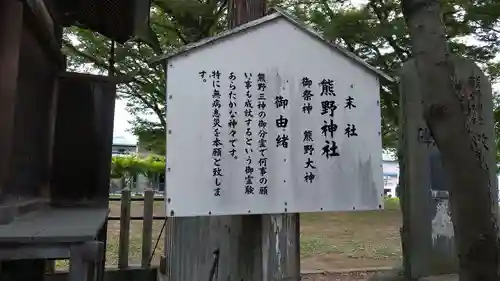 末社
熊野神社
御祭神 熊野大神
御由緒
熊野三神の御分霊で何事の願
い事も成技するという御霊験
あらたかな神々です。
特に無病息災を本願と致しま
す。